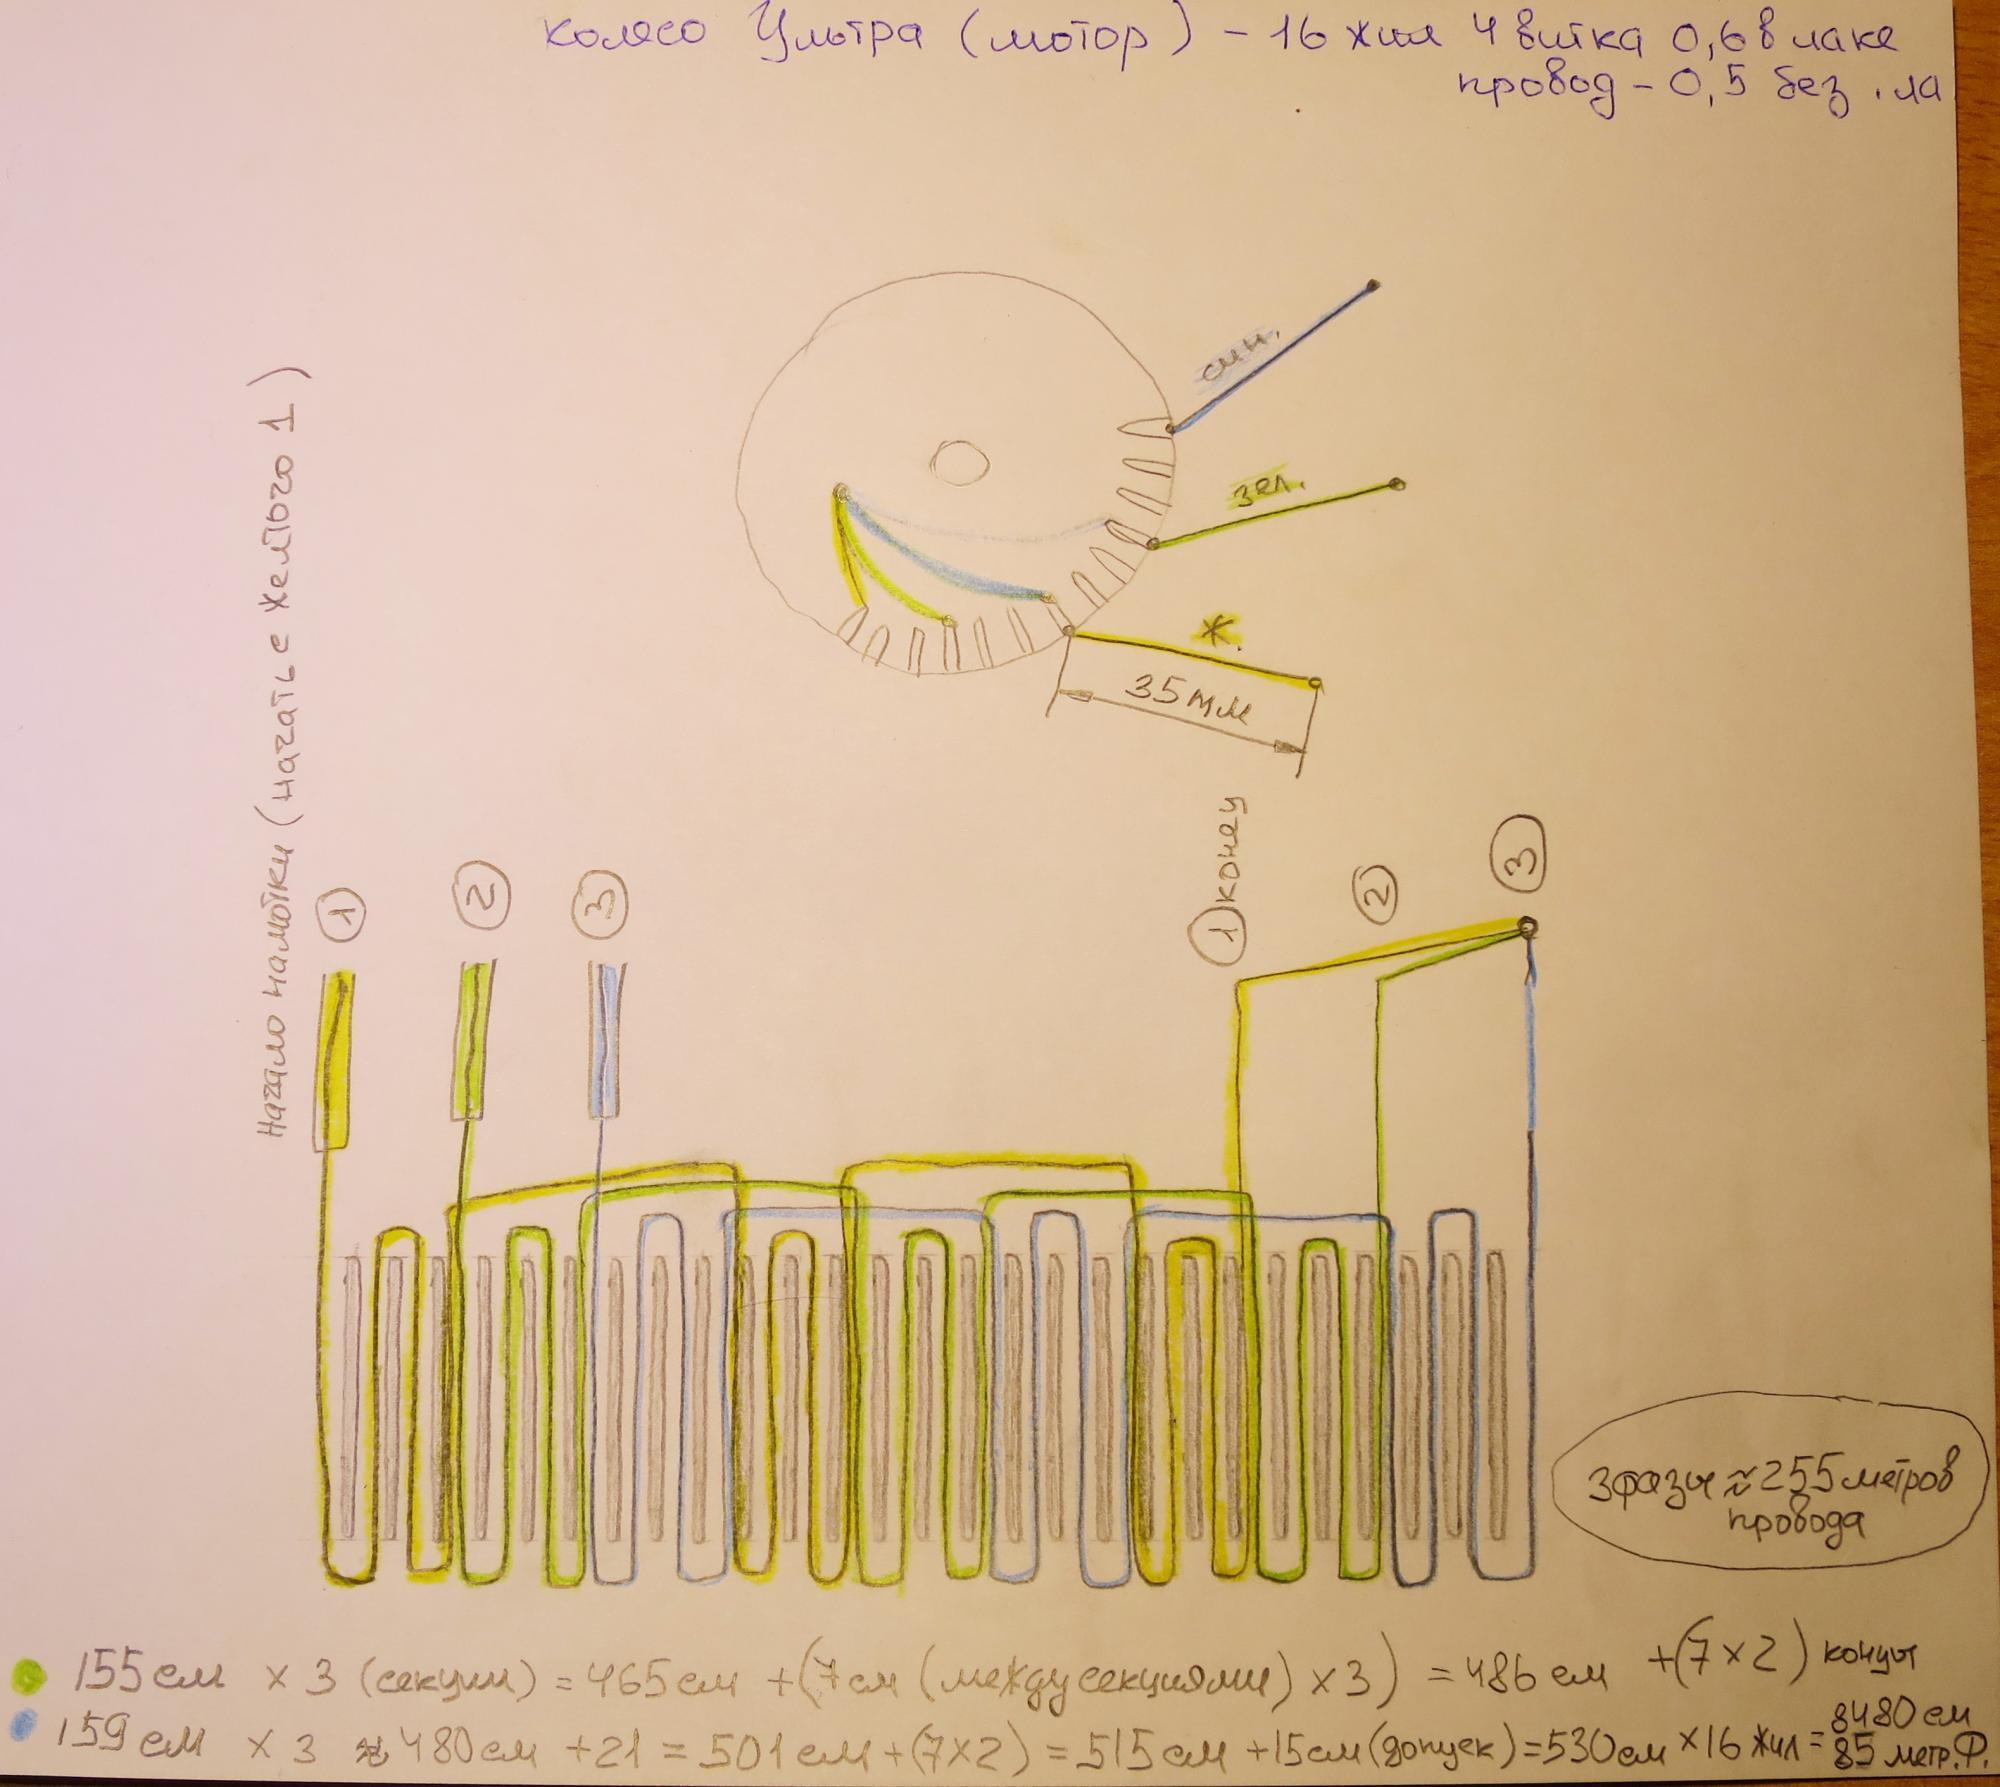 колесо Ультра (мотор) - 16 жил 4 витка 0,6 в лаке
провод - 0,5 без ла
син.
зел.
Ж.
35 мм
Начало намотки (начать с желтого 1)
1
2
3
1 конец
2
3
3 фазы ≈ 255 метров
провода
155 см × 3 (секции) = 465 см + (7 см (между секциями) × 3) = 486 см + (7 × 2) концы
159 см × 3 ≈ 480 см + 21 = 501 см + (7 × 2) = 515 см + 15 см (допуск) = 530 см × 16 жил = 8480 см
85 метр. Ф.